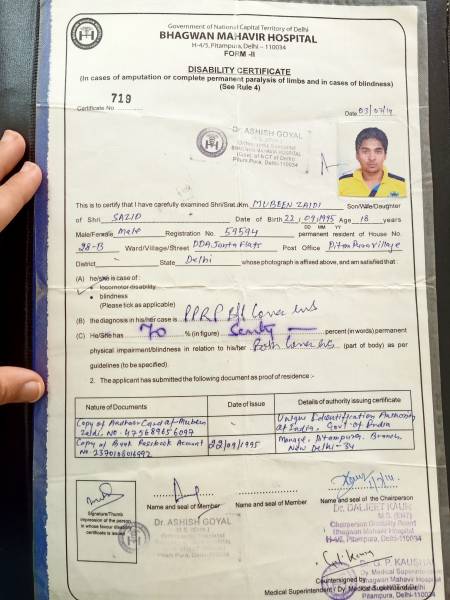 Government of National Capital Territory of Delhi
BHAGWAN MAHAVIR HOSPITAL
H-4/5, Pitampura, Delhi – 110034
FORM -II
DISABILITY CERTIFICATE
(In cases of amputation or complete permanent paralysis of limbs and in cases of blindness)
(See Rule 4)
Certificate No. 719
Date 03/07/14
Dr. ASHISH GOYAL
This is to certify that I have carefully examined Shri/Smt./Km. MUBEEN ZAIDI Son/Wife/Daughter
of Shri SAZID Date of Birth 22/09/1995 Age 18 years
DD MM YY
Male/Female Male Registration No. 59594 permanent resident of House No.
28-B Ward/Village/Street DDA Janta Flats Post Office Pitampura Village
District State Delhi whose photograph is affixed above, and am satisfied that :
(A) he/she is case of :
locomotor disability
blindness
(Please tick as applicable)
(B) the diagnosis in his/her case is PPRP B/L Lower limbs
(C) He/She has 70 % (in figure) Seventy percent (in words) permanent
physical impairment/blindness in relation to his/her Both Lower limbs (part of body) as per
guidelines (to be specified)
2. The applicant has submitted the following document as proof of residence :-
Nature of Documents Date of Issue Details of authority issuing certificate
Copy of Aadhaar Card of Mubeen
Zaidi, No. Unique Identification Authority
of India, Govt. of India
Copy of Bank Passbook Account
No 22/09/1995 Manage, Pitampura, Branch,
New Delhi-34
Signature/Thumb
impression of the person
in whose favour disability
certificate is issued
Name and seal of Member
Dr. ASHISH GOYAL
Name and seal of Member
Name and seal of the Chairperson
Dr. DALJEET KAUR
M.S. (ENT)
Chairperson Disability Board
Bhagwan Mahavir Hospital
H-4/5, Pitampura, Delhi-110034
Countersigned by
Medical Superintendent
Dr. G. P. KAUSHAL
Dy. Medical Superintendent
Bhagwan Mahavir Hospital
Pitampura, Delhi-110034